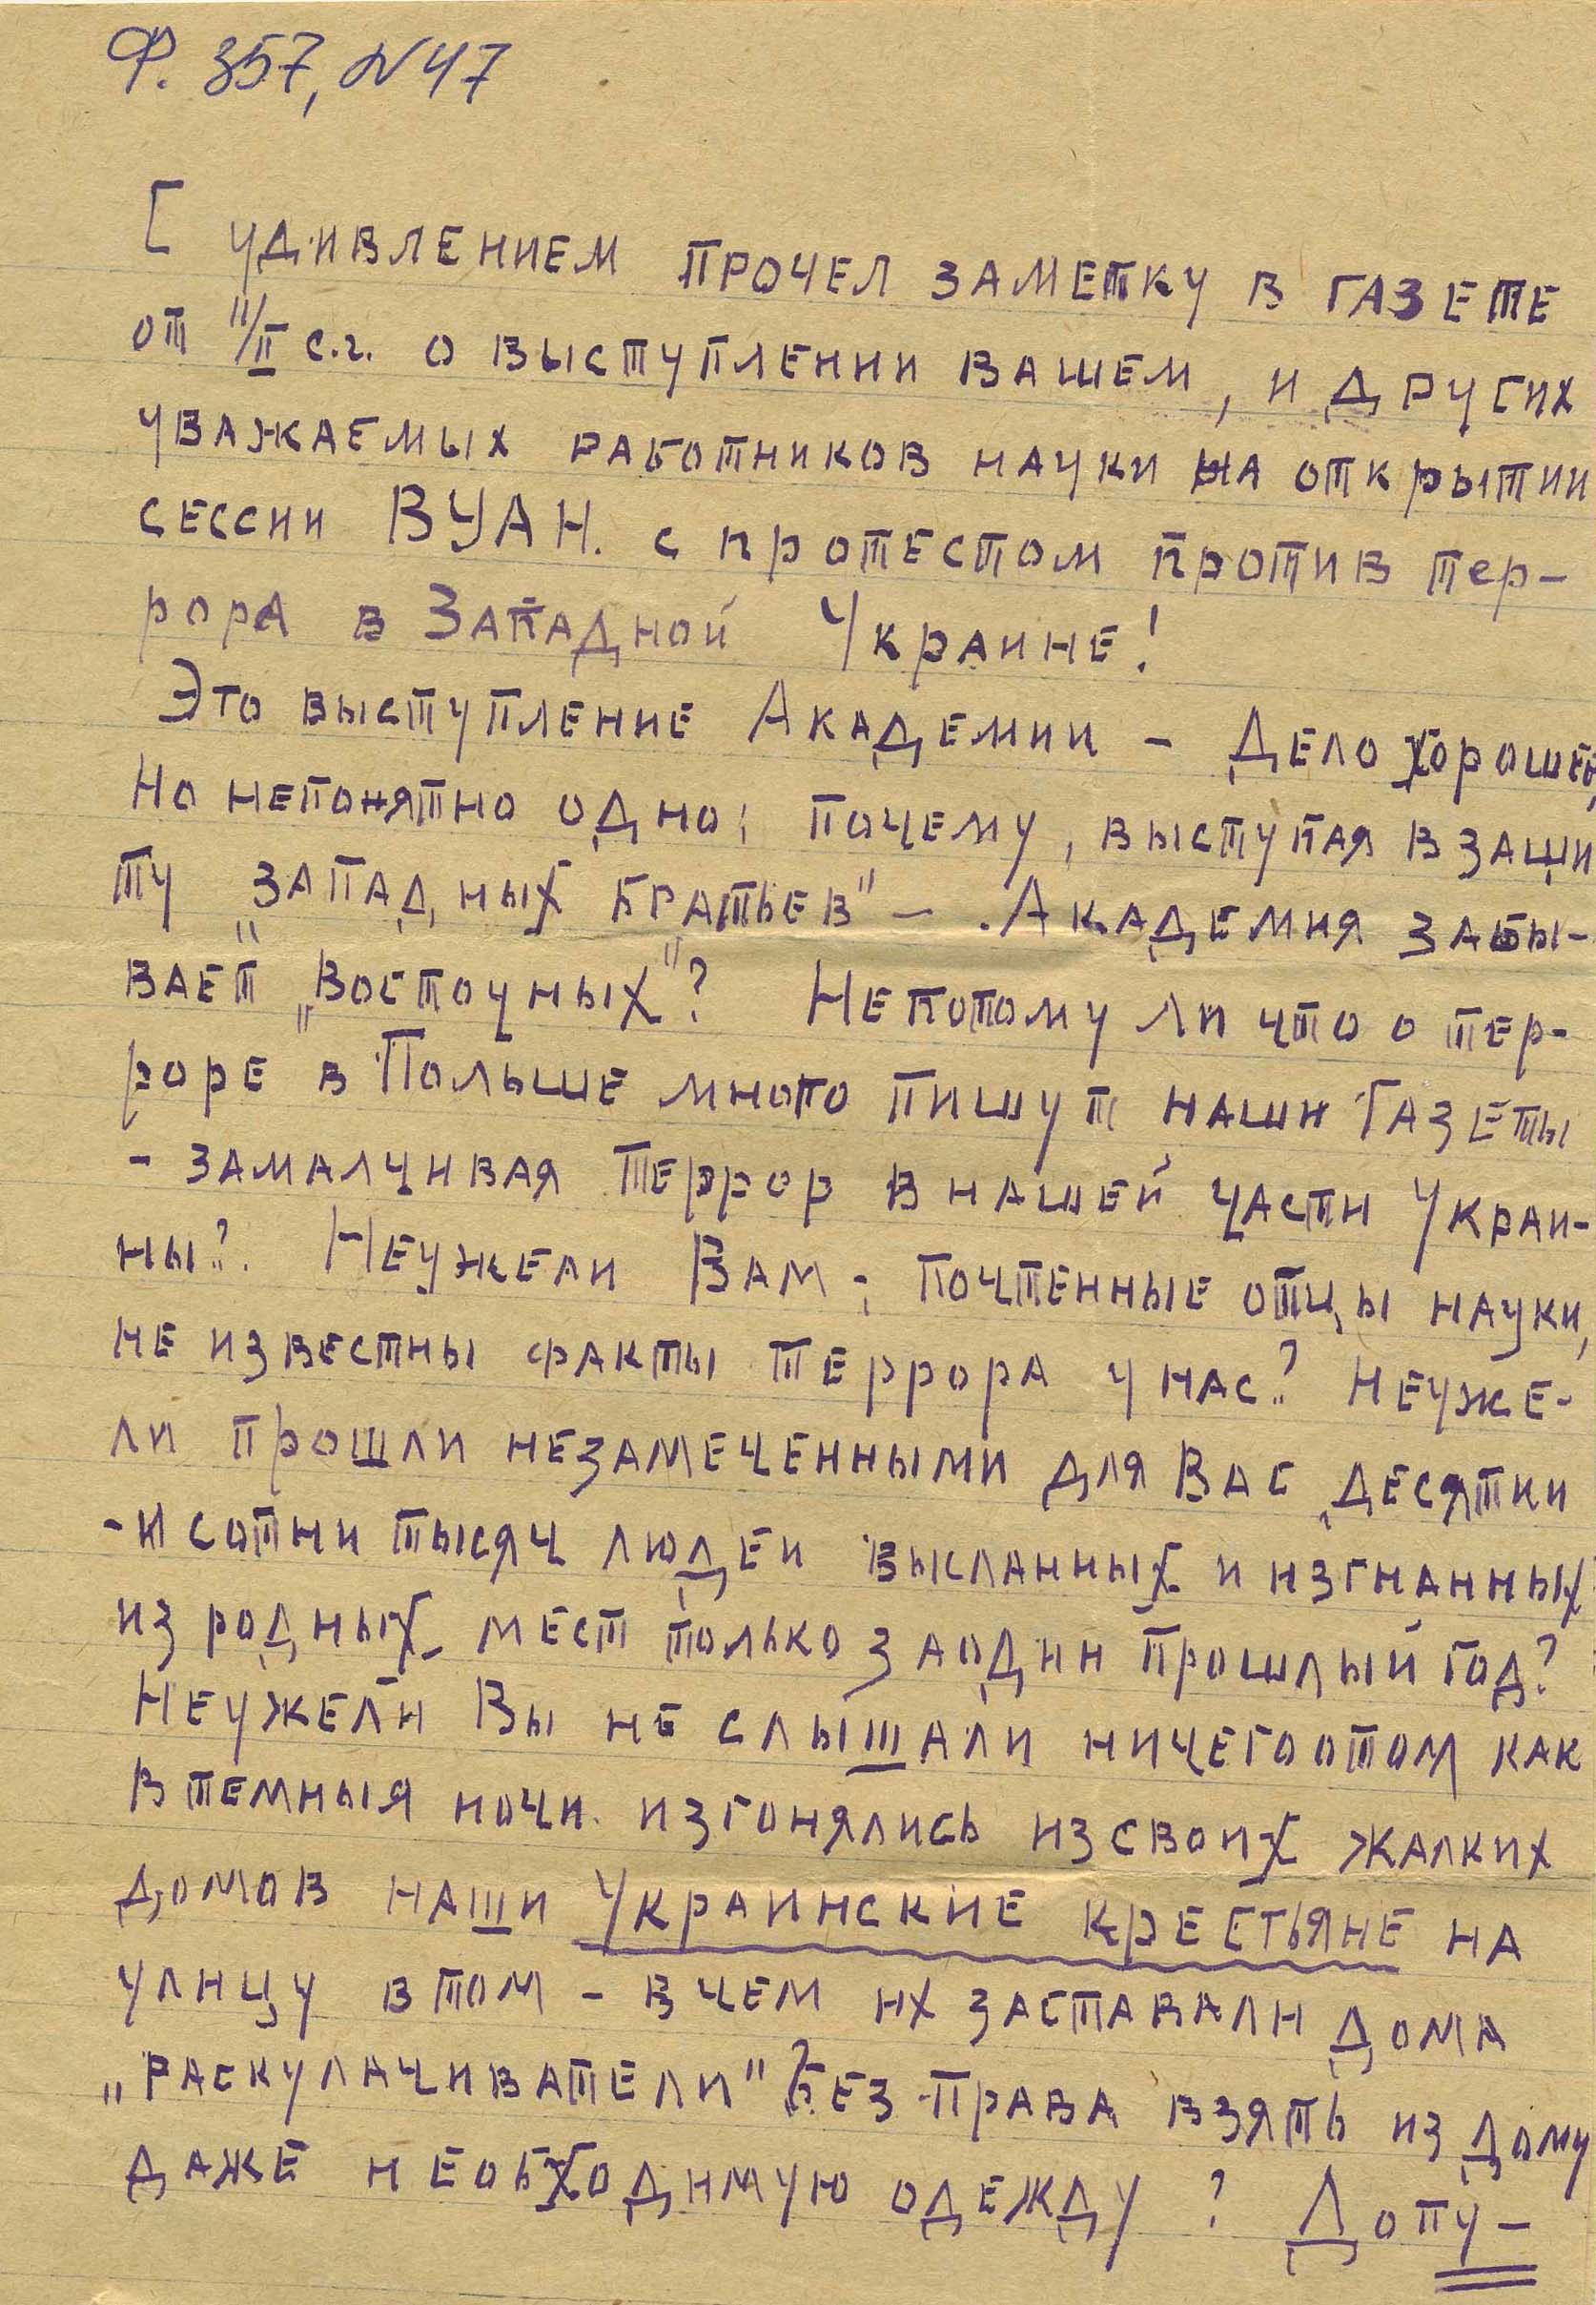 Ф. 357, №47
С удивлением прочел заметку в газете
от 11/II с.г. о выступлении вашем, и других
уважаемых работников науки на открытии
сессии ВУАН. с протестом против тер-
рора в Западной Украине!
Это выступление Академии – Дело хорошее,
Но непонятно одно: почему, выступая в защи
ту „западных братьев" – Академия забы-
вает „Восточных"? Непотому ли что о тер-
роре в Польше много пишут наши Газеты
- замалчивая террор в нашей части Украи-
ны?. Неужели Вам; почтенные отцы науки,
не известны факты террора у нас? Неуже-
ли прошли незамеченными для Вас десятки
- и сотни тысяч людей высланных и изгнанных
из родных мест только заодин прошлый год?
Неужели Вы не слышали ничегоотом как
в темныя ночи. изгонялись из своих жалких
домов наши Украинские крестьяне на
улицу в том – в чем их заставали дома
„раскулачиватели" без права взять из дому
даже необходимую одежду? Допу-